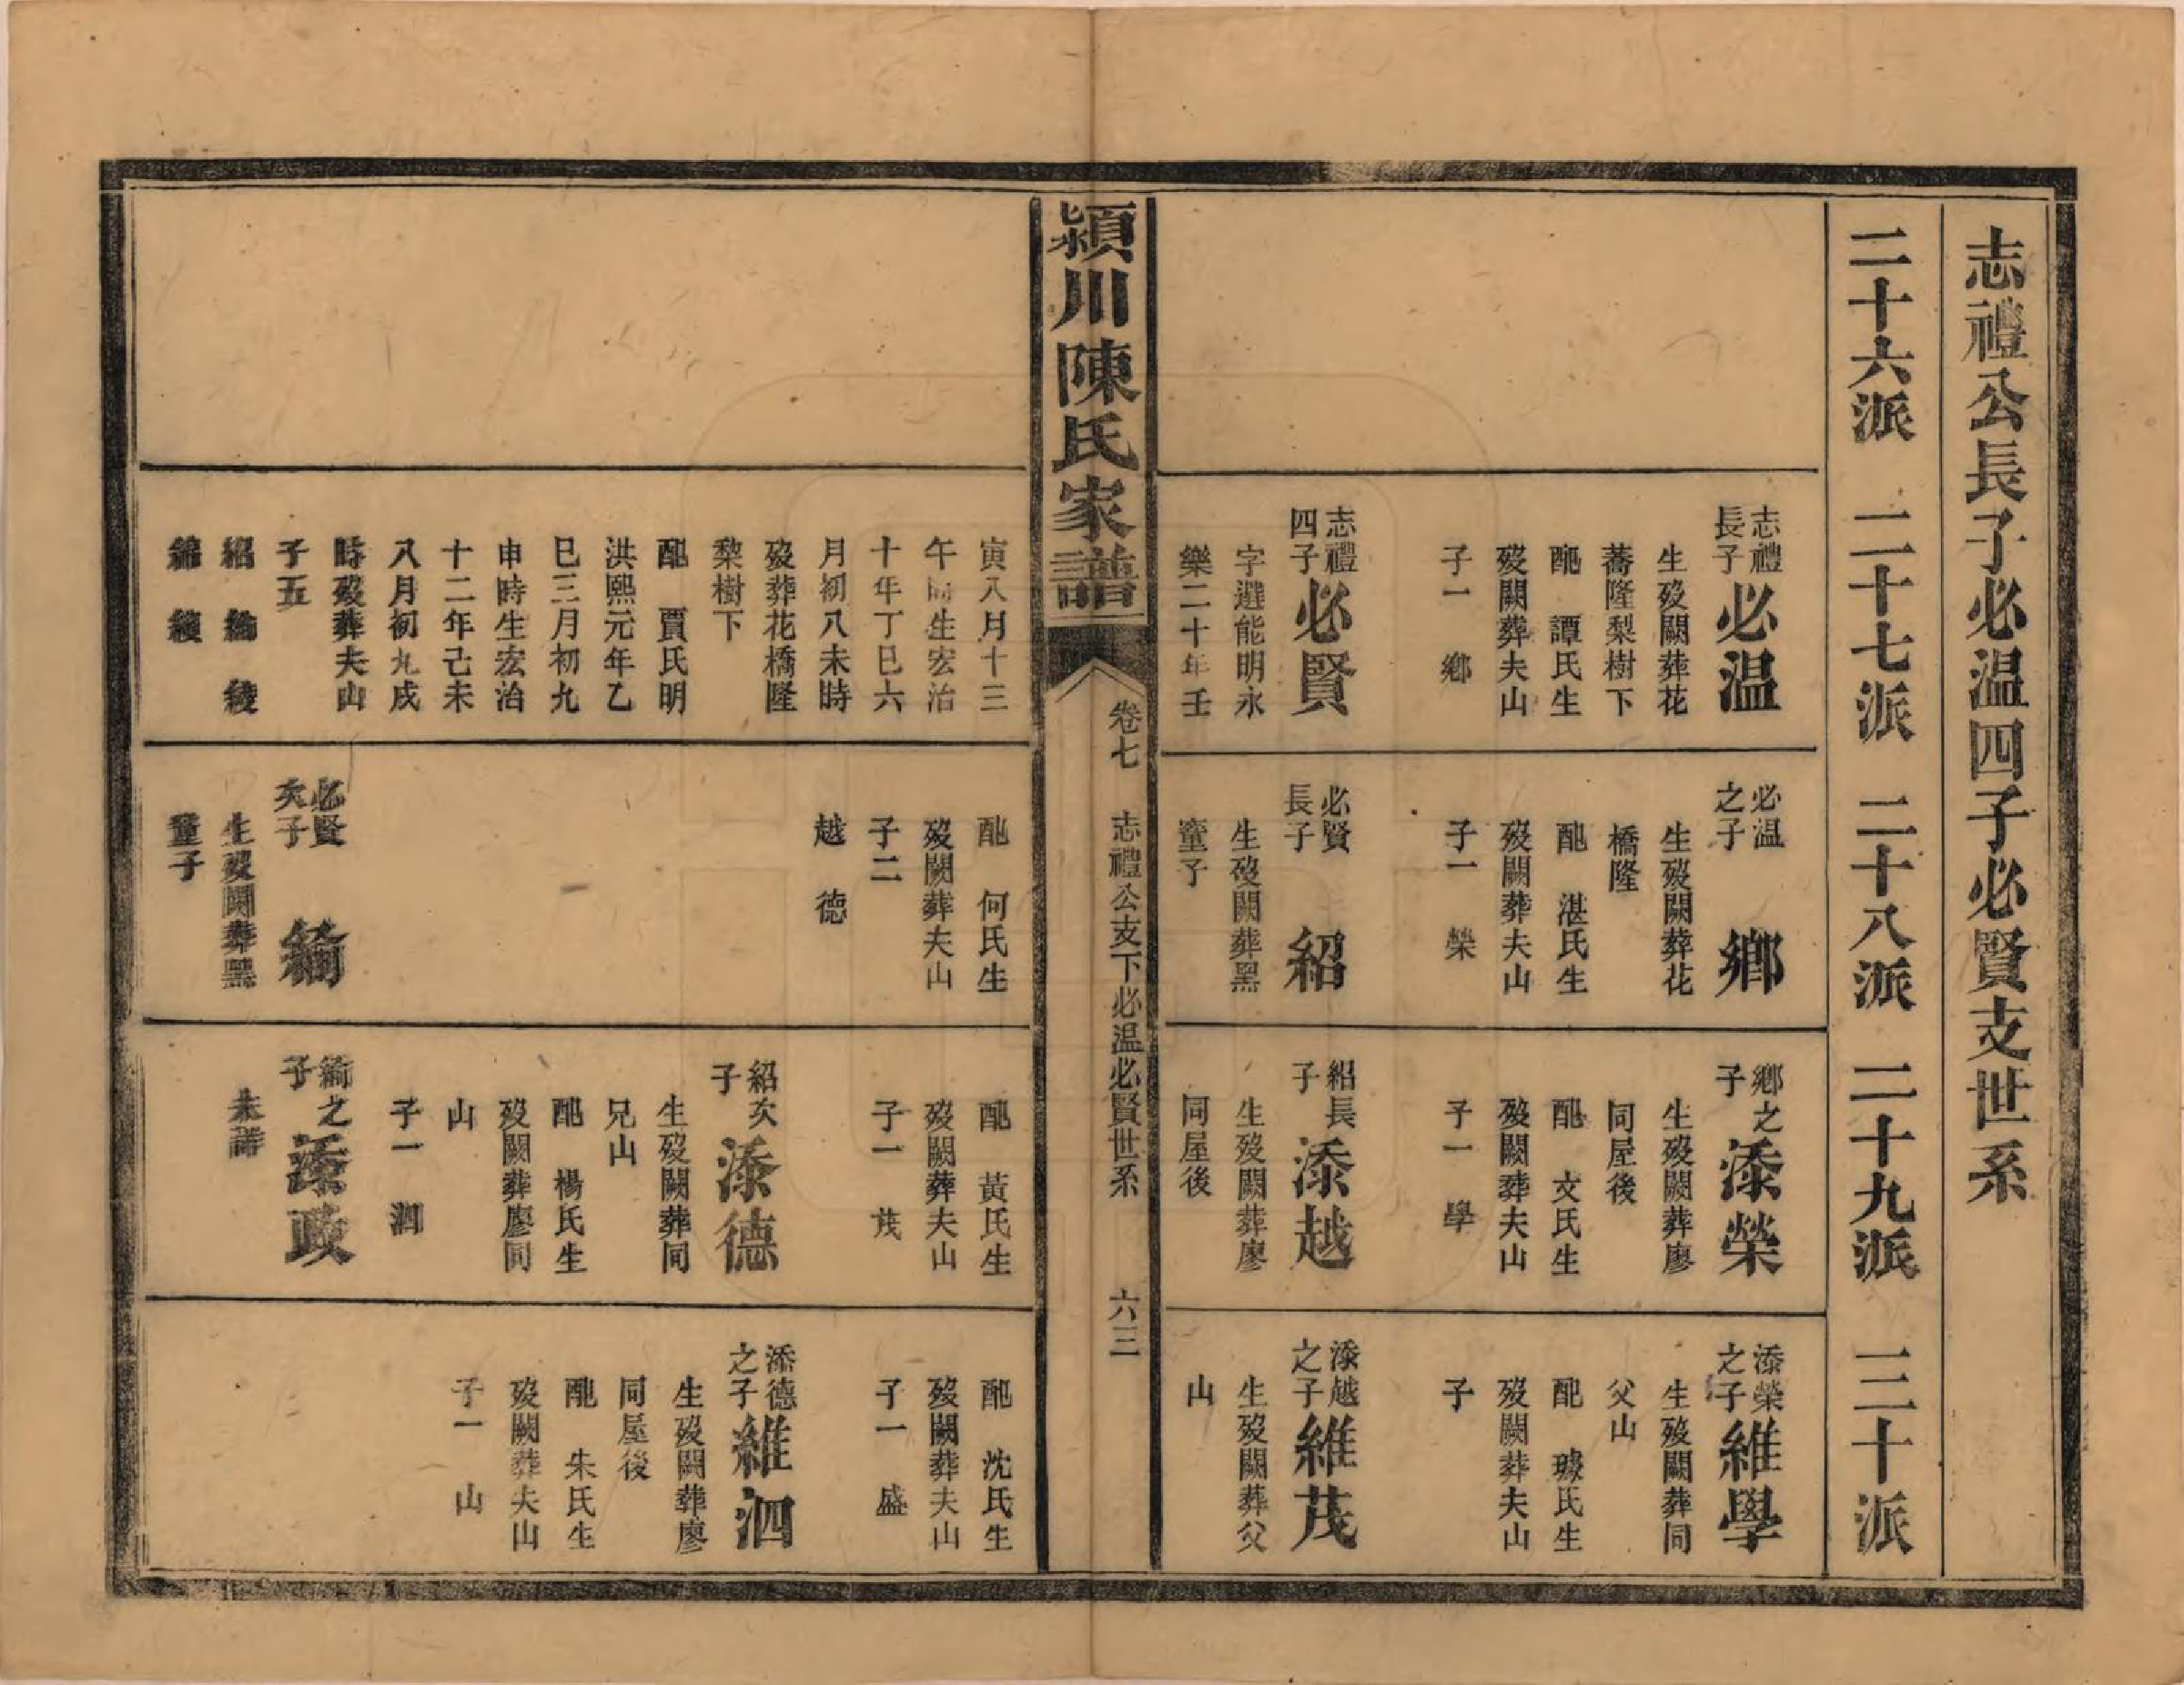 志禮公長子必温四子必賢支世系
二十六派
二十七派
二十八派
二十九派
三十派
志禮
長子
必温
生歿闕葬花
蕎隆梨樹下
配 譚氏生
歿闕葬夫山
子一 鄉
志禮
四子
必賢
字選能明永
樂二十年壬
必温
之子
鄉
生歿闕葬花
橋隆
配 湛氏生
歿闕葬夫山
子一 榮
必賢
長子
紹
生歿闕葬黑
童子
鄉之
子
添榮
生歿闕葬廖
同屋後
配 文氏生
歿闕葬夫山
子一 學
紹長
子
添越
生歿闕葬廖
同屋後
添榮
之子
維學
生歿闕葬同
父山
配 璩氏生
歿闕葬夫山
子
添越
之子
維茂
生歿闕葬父
山
潁川陳氏家譜
卷七 志禮公支下必温必賢世系 六三
寅八月十三
午時生宏治
十年丁巳六
月初八未時
歿葬花橋隆
梨樹下
配 賈氏明
洪熙元年乙
巳三月初九
申時生宏治
十二年己未
八月初九戌
時歿葬夫山
子五
紹 綸 綾
錦 
配 何氏生
歿闕葬夫山
子二
越 德
必賢
次子
綸
生歿闕葬黑
童子
配 黃氏生
歿闕葬夫山
子一 茂
紹次
子
添德
生歿闕葬同
兄山
配 楊氏生
歿闕葬廖同
山
子一 泗
綸之
子
添政
未詳
配 沈氏生
歿闕葬夫山
子一 盛
添德
之子
維泗
生歿闕葬廖
同屋後
配 朱氏生
歿闕葬夫山
子一 山